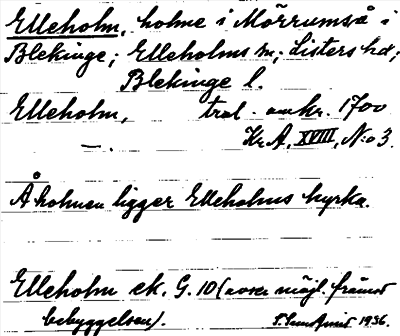 Elleholm, holme i Mörrumså i
Blekinge; Elleholms sn, Listers hd,
Blekinge l.
Elleholm, trol. omkr. 1700
—. Kr.A, XVIII, N:o 3.
Å holmen ligger Elleholms kyrka.
Elleholm ek. G. 10 (avser möjl. främst
bebyggelsen). S. 1936.